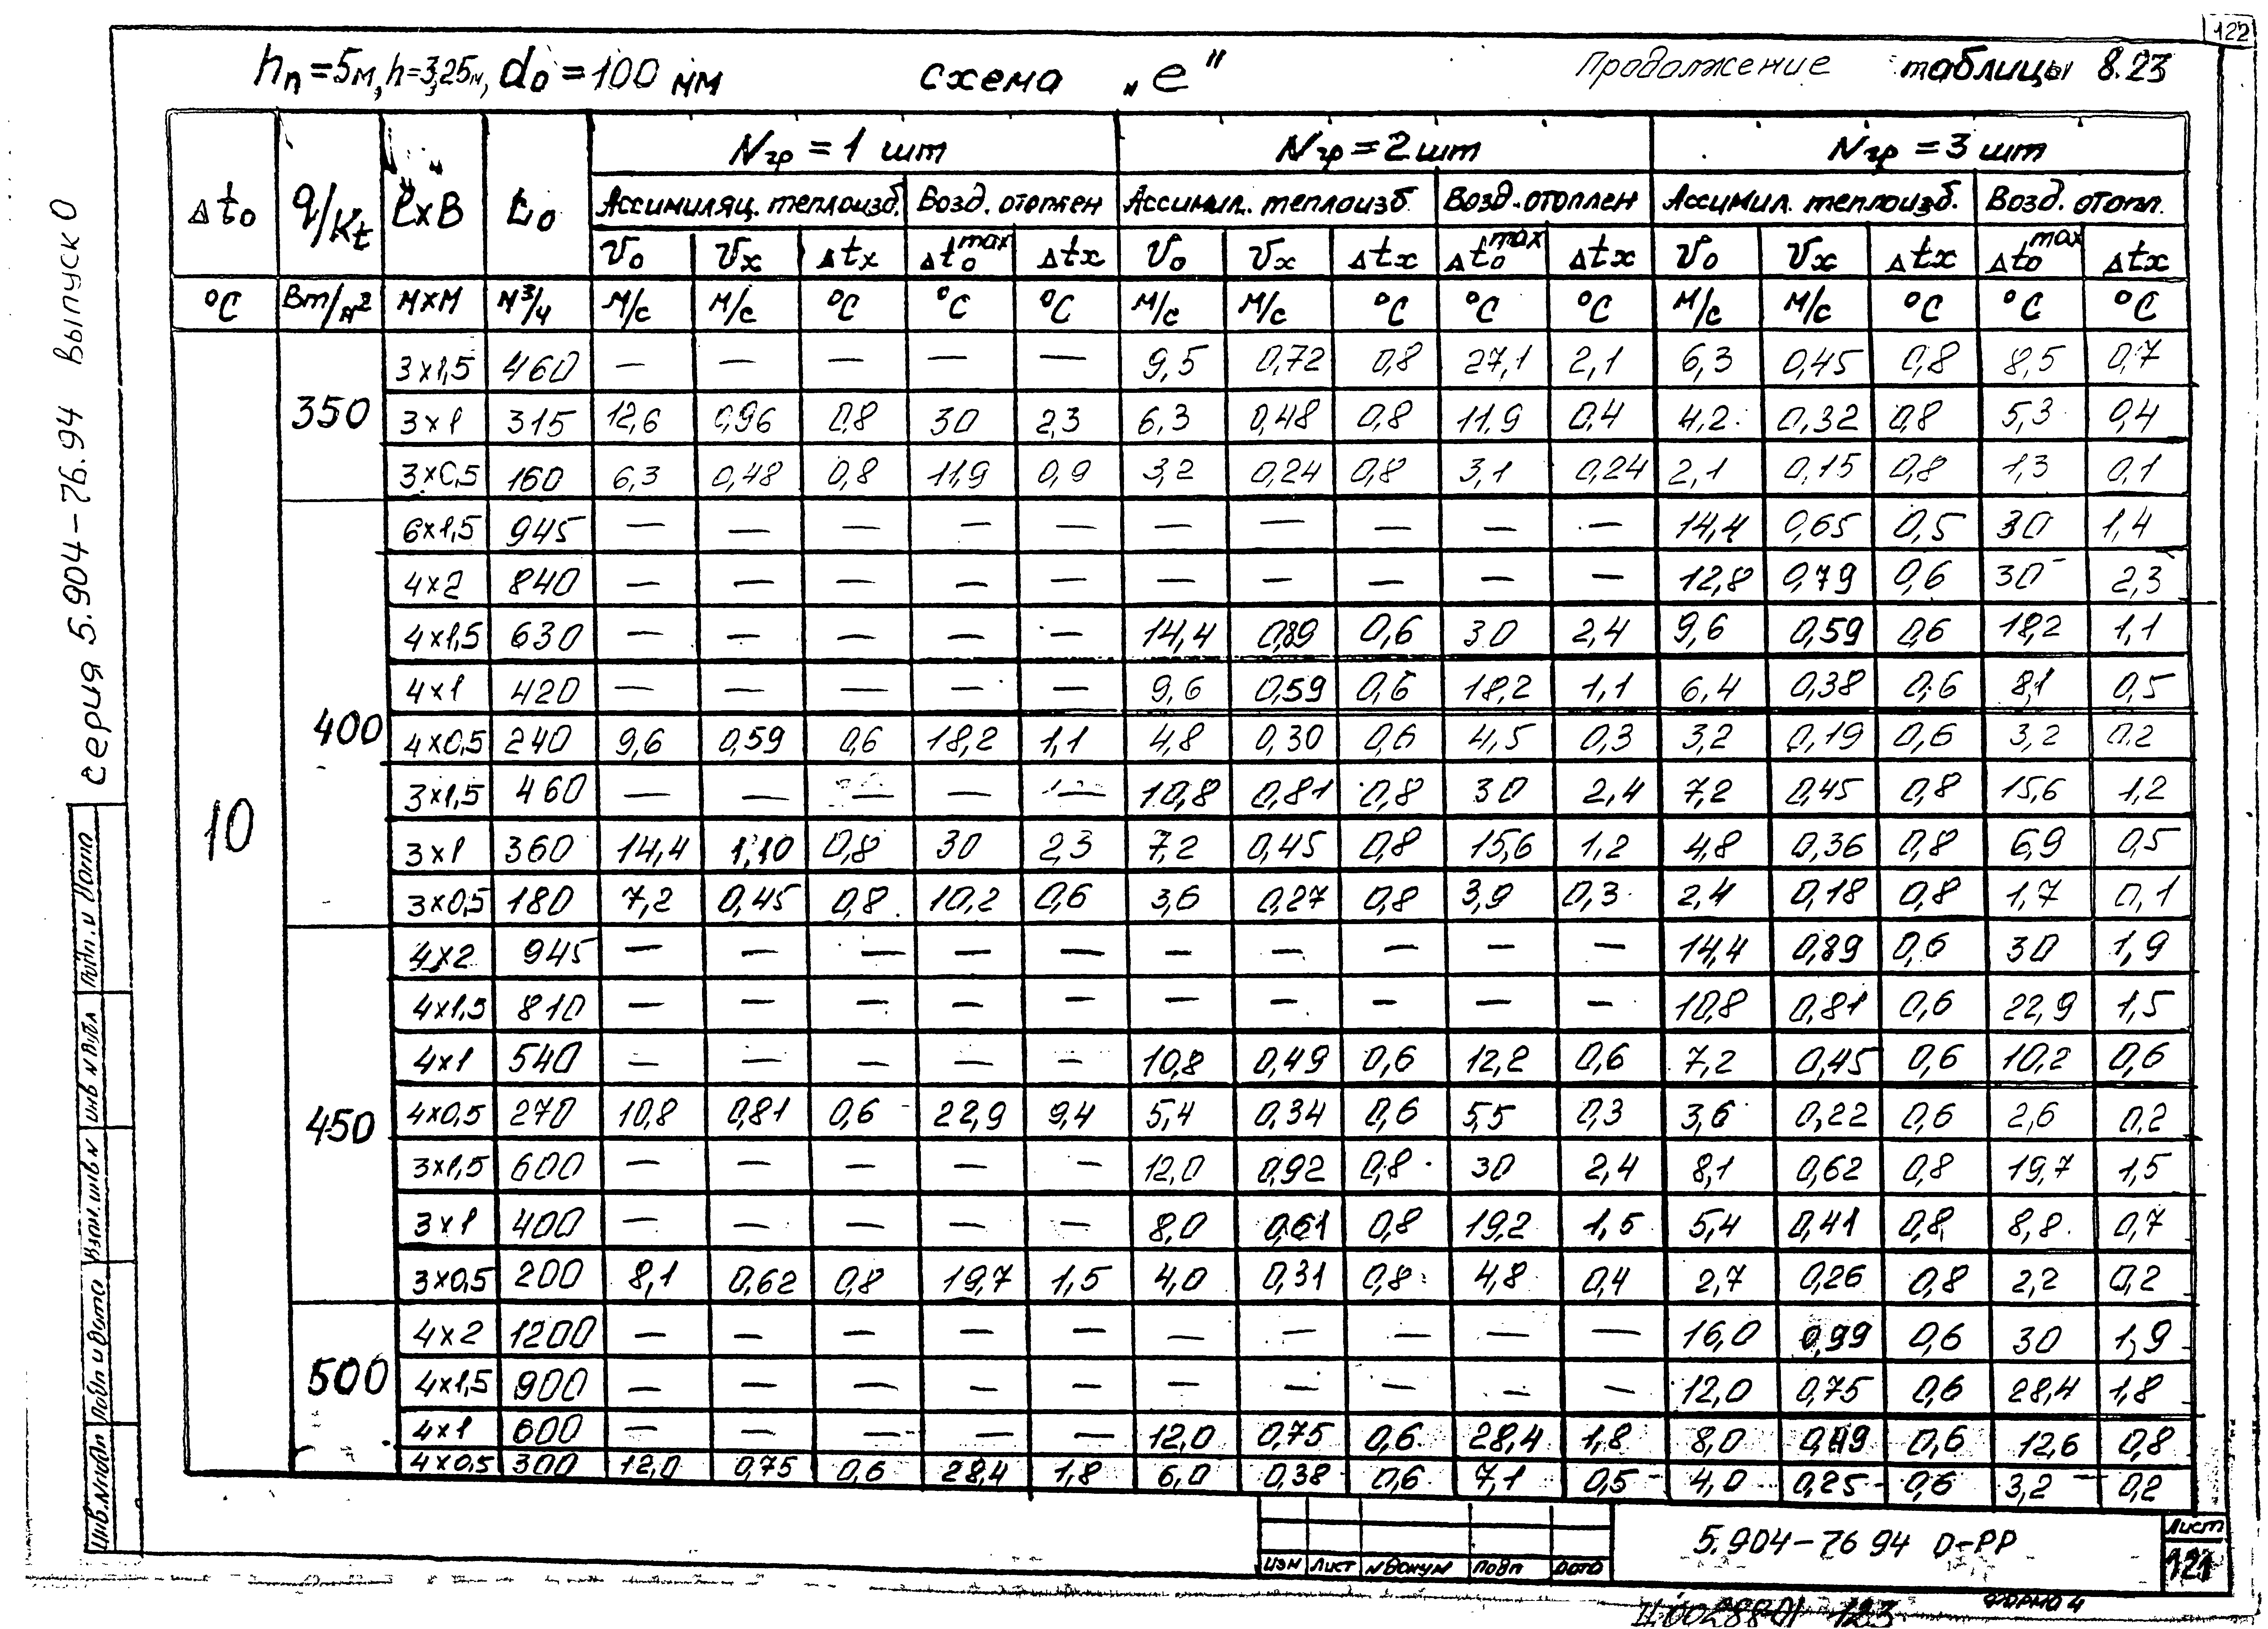 122
hп=5м, h=3,25м, do=100 мм схема „е" Продолжение таблицы 8.23
Nгр=1 шт Nгр=2шт Nгр=3 шт
Δto q/Kt ℓxB Lo Ассимиляц. теплоизб. Возд. отоплен Ассимил. теплоизб. Возд.отоплен Ассимил. теплоизб. Возд. отопл.
Vo Vx Δtx Δto max Δtx Vo Vx Δtx Δto max Δtx Vo Vx Δtx Δto max Δtx
°С Вт/м² МхМ м³/ч м/с м/с °С °С °С м/с м/с °С °С °С м/с м/с °С °С °С
10
350
3х1,5 460 — — — — — 9,5 0,72 0,8 27,1 2,1 6,3 0,45 0,8 8,5 0,7
3х1 315 12,6 0,96 0,8 30 2,3 6,3 0,48 0,8 11,9 0,4 4,2 0,32 0,8 5,3 0,4
3х0,5 160 6,3 0,48 0,8 11,9 0,9 3,2 0,24 0,8 3,1 0,24 2,1 0,15 0,8 1,3 0,1
400
6х1,5 945 — — — — — — — — — — 14,4 0,65 0,5 30 1,4
4х2 840 — — — — — — — — — — 12,8 0,79 0,6 30 2,3
4х1,5 630 — — — — — 14,4 0,89 0,6 30 2,4 9,6 0,59 0,6 18,2 1,1
4х1 420 — — — — — 9,6 0,59 0,6 18,2 1,1 6,4 0,38 0,6 8,1 0,5
4х0,5 240 9,6 0,59 0,6 18,2 1,1 4,8 0,30 0,6 4,5 0,3 3,2 0,19 0,6 3,2 0,2
3х1,5 460 — — — — — 10,8 0,81 0,8 30 2,4 7,2 0,45 0,8 15,6 1,2
3х1 360 14,4 1,10 0,8 30 2,3 7,2 0,45 0,8 15,6 1,2 4,8 0,36 0,8 6,9 0,5
3х0,5 180 7,2 0,45 0,8 10,2 0,6 3,6 0,27 0,8 3,9 0,3 2,4 0,18 0,8 1,7 0,1
450
4х2 945 — — — — — — — — — — 14,4 0,89 0,6 30 1,9
4х1,5 810 — — — — — — — — — — 10,8 0,81 0,6 22,9 1,5
4х1 540 — — — — — 10,8 0,49 0,6 12,2 0,6 7,2 0,45 0,6 10,2 0,6
4х0,5 270 10,8 0,81 0,6 22,9 9,4 5,4 0,34 0,6 5,5 0,3 3,6 0,22 0,6 2,6 0,2
3х1,5 600 — — — — — 12,0 0,92 0,8 30 2,4 8,1 0,62 0,8 19,7 1,5
3х1 400 — — — — — 8,0 0,61 0,8 19,2 1,5 5,4 0,41 0,8 8,8 0,7
3х0,5 200 8,1 0,62 0,8 19,7 1,5 4,0 0,31 0,8 4,8 0,4 2,7 0,26 0,8 2,2 0,2
500
4х2 1200 — — — — — — — — — — 16,0 0,99 0,6 30 1,9
4х1,5 900 — — — — — — — — — — 12,0 0,75 0,6 28,4 1,8
4х1 600 — — — — — 12,0 0,75 0,6 28,4 1,8 8,0 0,49 0,6 12,6 0,8
4х0,5 300 12,0 0,75 0,6 28,4 1,8 6,0 0,38 0,6 7,1 0,5 4,0 0,25 0,6 3,2 0,2
серия 5.904-76.94 выпуск 0
Подп. и дата
инв № дубл
взам. инв №
Подп и дата
Инв.№ подл
изм лист № докум Подп дата
5.904-76 94 0-РР
Лист
121
Ц00288-01 123
ФОРМА 4